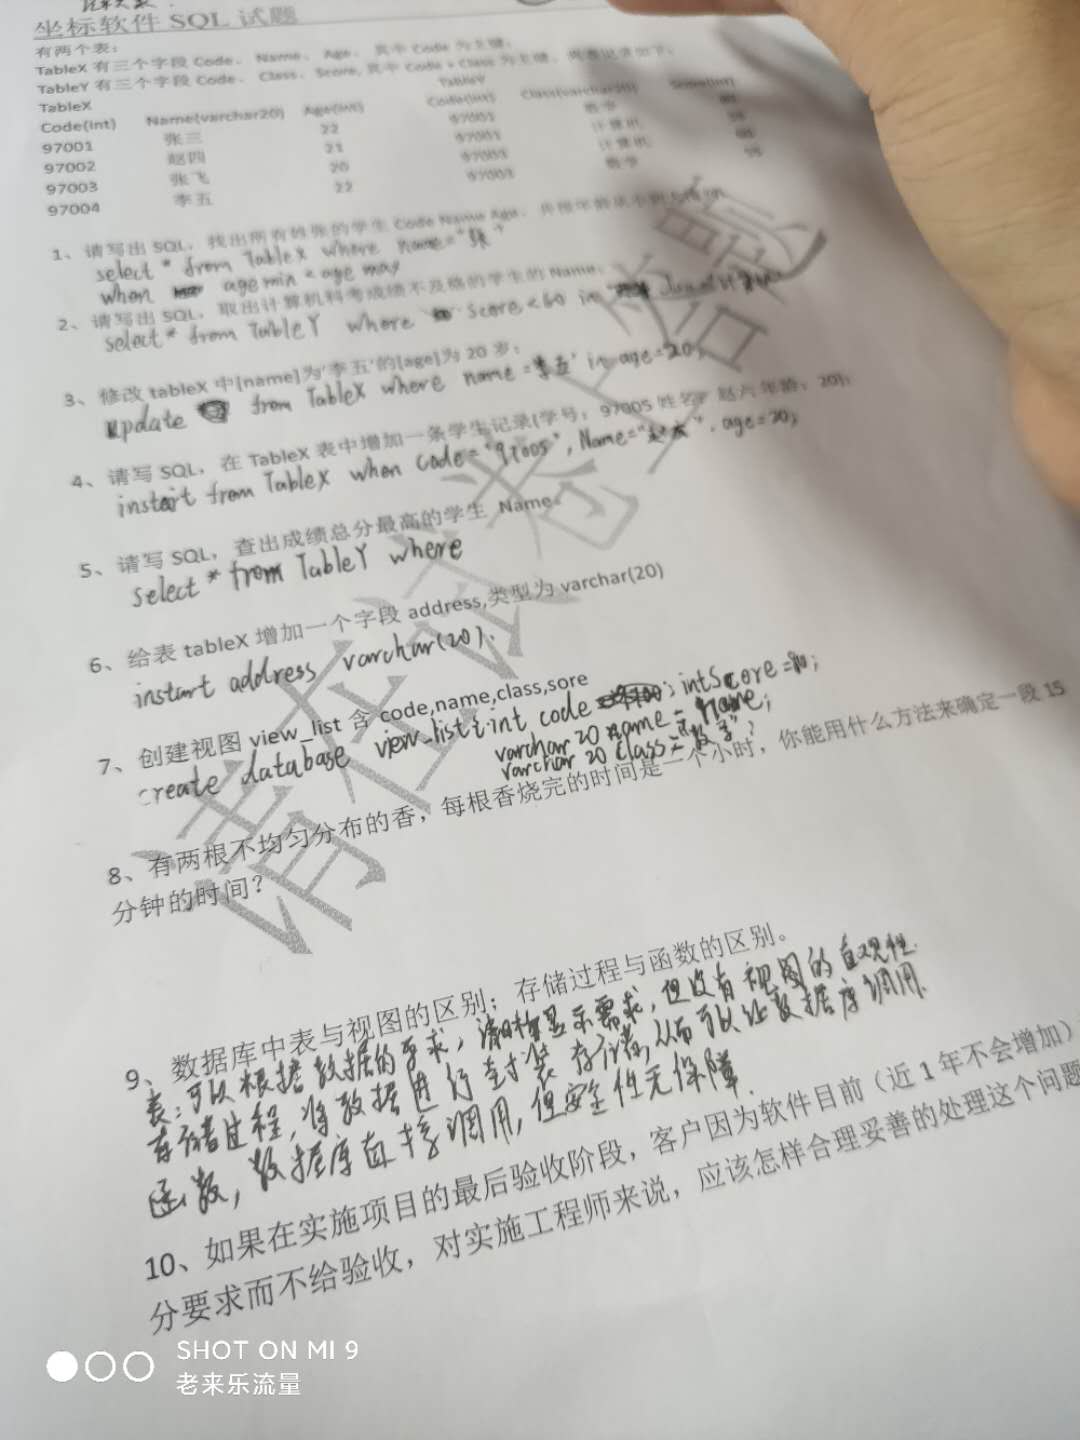 坐标软件 SQL 试题
有两个表：
TableX 有三个字段 Code、Name、Age、其中 Code 为主键；
TableY 有三个字段 Code、Class、Score, 其中 Code + Class 为主键。两表记录如下：
TableX TableY
Code(int) Name(varchar20) Age(int) Code(int) Class(varchar20) Score(int)
97001 张三 22 97001 数学
97002 赵四 21 计算机
97003 张飞 20 97003 计算机
97004 李五 22 97003 数学
1、请写出 SQL，找出所有姓张的学生 Code Name Age，并按年龄从小到大
select * from TableX where name="张"
when age min < age max
2、请写出 SQL，取出计算机科考成绩不及格的学生的 Name；
select * from TableY where score < 60 in
3、修改 tableX 中[name]为'李五'的[age]为 20 岁；
update from TableX where name='李五' in age=20;
4、请写 SQL，在 TableX 表中增加一条学生记录(学号：97005 姓名：赵六 年龄：20)；
instert from TableX when code="97005", Name="赵六", age=20;
5、请写 SQL，查出成绩总分最高的学生 Name。
select * from TableY where
6、给表 tableX 增加一个字段 address,类型为 varchar(20)
instart address varchar(20);
7、创建视图 view_list 含 code,name,class,sore
create database view_list: int code ; int Score=80;
varchar 20 name = name;
varchar 20 class="数学";
8、有两根不均匀分布的香，每根香烧完的时间是一个小时，你能用什么方法来确定一段 15
分钟的时间？
9、数据库中表与视图的区别；存储过程与函数的区别。
表：可以根据数据的要求，清晰显示需求，但没有视图的直观性.
存储过程，将数据进行封装存储，从而可以让数据库调用.
函数，数据库直接调用，但安全性无保障.
10、如果在实施项目的最后验收阶段，客户因为软件目前（近 1 年不会增加）
分要求而不给验收，对实施工程师来说，应该怎样合理妥善的处理这个问题
请在试卷上答题
SHOT ON MI 9
老来乐流量